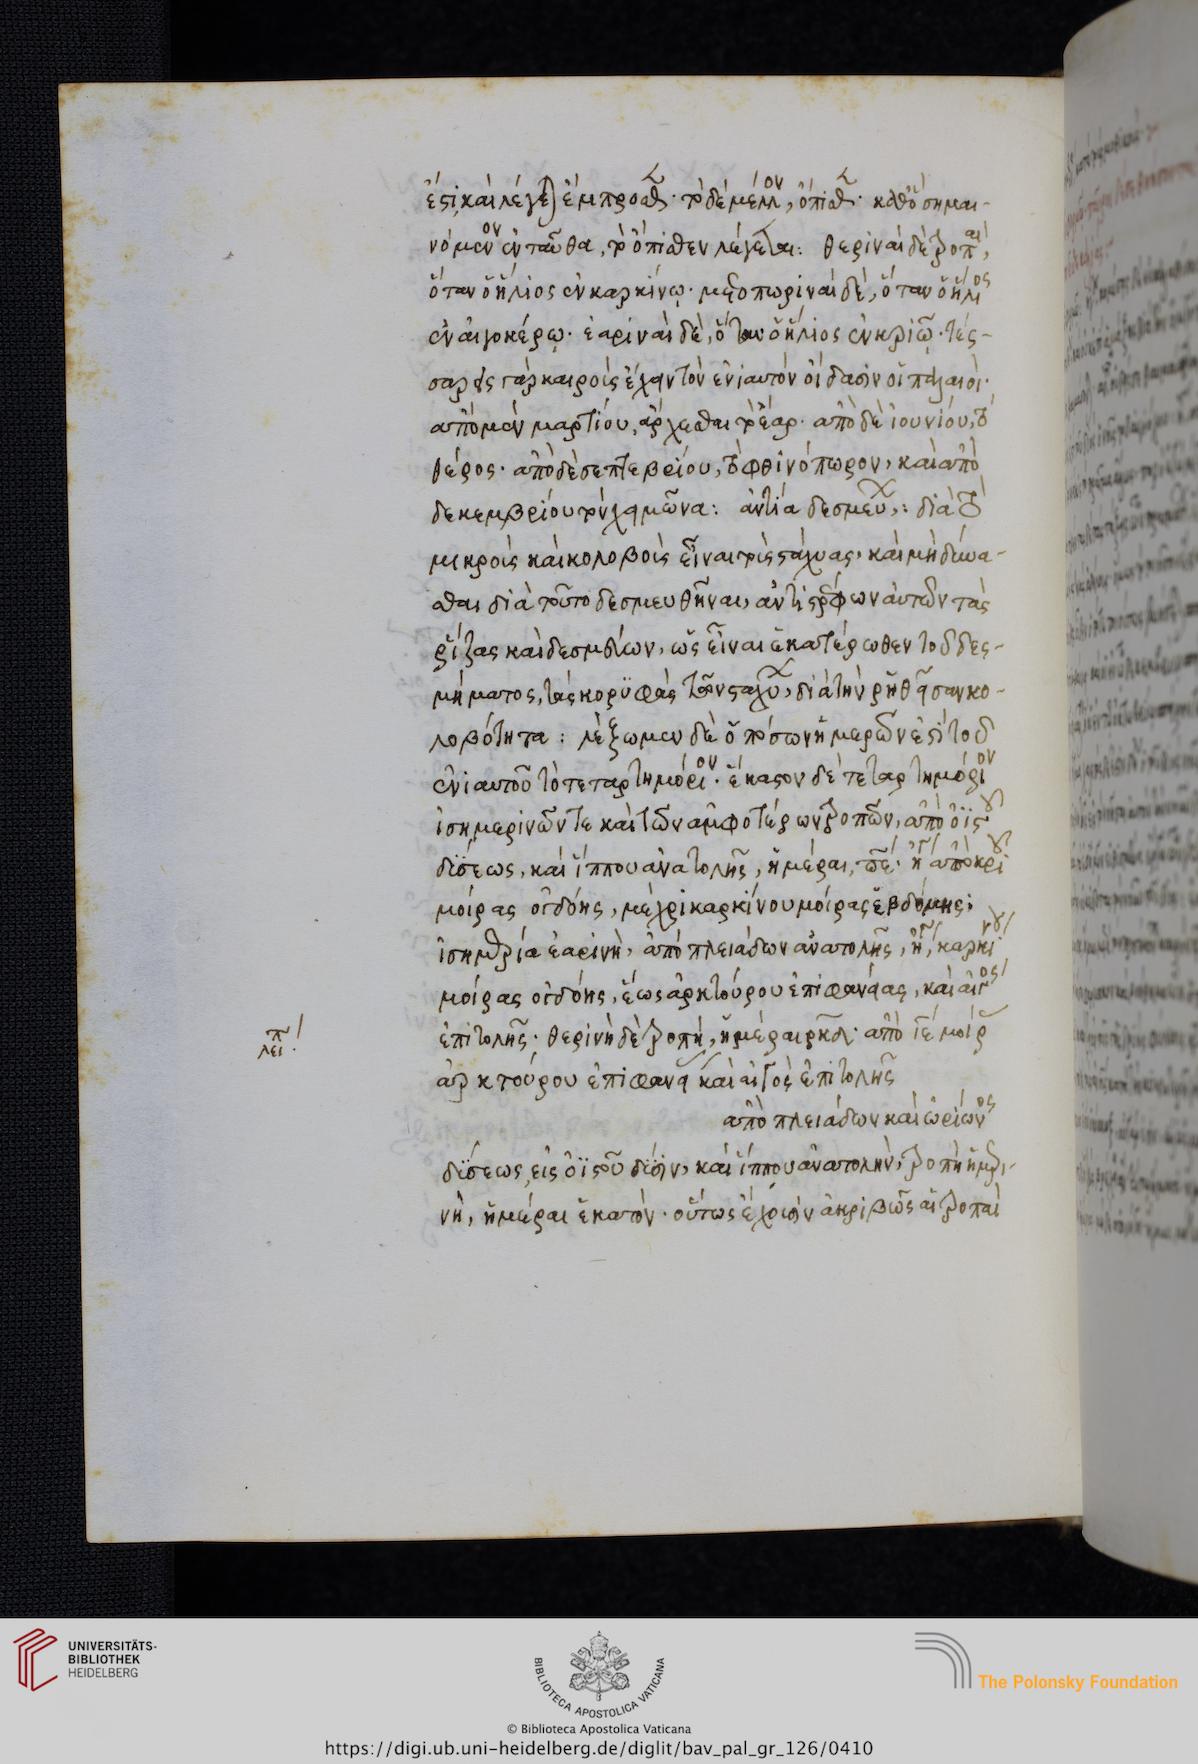 ἐστι καὶ λέγε) ἔμπροσθ· τὸ δὲ μέλλον, ὄπισθ· καθὸ σημαι-
νόμενον ἐνταῦθα, τὸ ὄπισθεν λέγεται: θεριναὶ δὲ τροπαὶ,
ὅταν ὁ ἥλιος ἐν καρκίνῳ· μεθοπωριναὶ δὲ, ὅταν ὁ ἥλιος
ἐν αἰγοκέρῳ· ἐαριναὶ δὲ, ὅταν ὁ ἥλιος ἐν κριῷ· τές-
σαρας γὰρ καιροὺς ἔχειν τὸν ἐνιαυτὸν οἴδασιν οἱ παλαιοί·
ἀπὸ μὲν μαρτίου, ἄρχεσθαι τὸ ἔαρ· ἀπὸ δὲ ἰουνίου, τὸ
θέρος· ἀπὸ δὲ σεπτεβρίου, τὸ φθινόπωρον, καὶ ἀπὸ
δεκεμβρίου τὸν χειμῶνα: ἀντία δεσμεύ: διὰ τὸ
μικροὺς καὶ κολοβοὺς εἶναι τοὺς στάχυας, καὶ μὴ δύνα-
σθαι διὰ τοῦτο δεσμευθῆναι, ἀντιστρέφων αὐτῶν τὰς
ῥίζας καὶ δεσμεύων, ὡς εἶναι ἑκατέρωθεν τοῦ δες-
μήματος, τὰς κορϋφὰς τῶν σταχύ, διὰ τὴν ῥηθεῖσαν κο-
λοβότητα: λέξωμεν δὲ ὁπόσων ἡμερῶν ἐστὶ τοῦ
ἐνιαυτοῦ τὸ τεταρτημόριον· ἕκαστον δὲ τεταρτημόριον
ἰσημερινῶν τε καὶ τῶν ἀμφοτέρων τροπῶν, ἀπὸ ὀϊστοῦ
δύσεως, καὶ ἵππου ἀνατολῆς, ἡμέραι, πε· ἤτοι ἀπὸ κριοῦ
μοίρας ὀγδόης, μέχρι καρκίνου μοίρας ἑβδόμης·
ἰσημερία ἐαρινὴ, ἀπὸ πλειάδων ἀνατολῆς, ἤτοι, καρκίνου
μοίρας ὀγδόης, ἕως ἀρκτούρου ἐπιφανείας, καὶ αἰγὸς
ἐπιτολῆς· θερινὴ δὲ τροπή, ἡμέραι ρκδ· ἀπὸ ιε μοίρ
π
λει:
ἀρκτούρου ἐπιφανεί καὶ αἰγὸς ἐπιτολῆς
ἀπὸ πλειάδων καὶ ὠρίωνος
δύσεως, εἰς ὀϊστοῦ δύσιν, καὶ ἵππου ἀνατολὴν, τροπὴ ἡμερι-
νὴ, ἡμέραι ἑκατόν· οὕτως ἔχουσιν ἀκριβῶς αἱ τροπαὶ
UNIVERSITÄTS-
BIBLIOTHEK
HEIDELBERG
BIBLIOTECA APOSTOLICA VATICANA
The Polonsky Foundation
© Biblioteca Apostolica Vaticana
https://digi.ub.uni-heidelberg.de/diglit/bav_pal_gr_126/0410